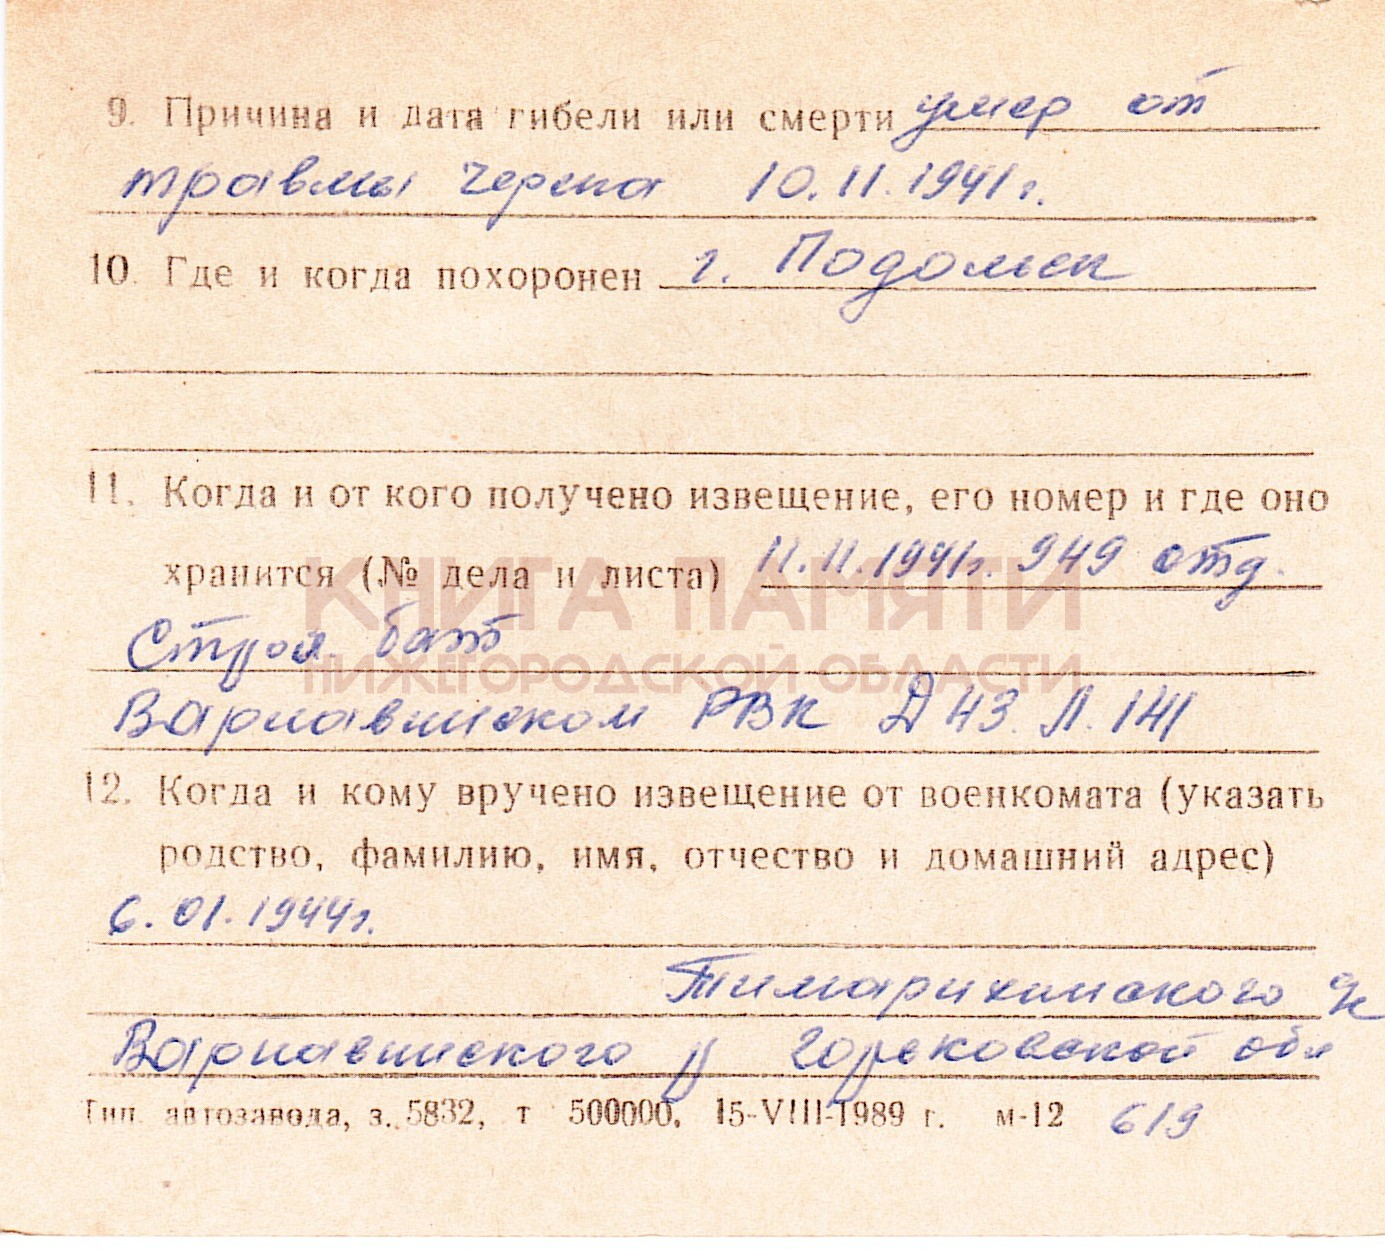 9. Причина и дата гибели или смерти умер от
травмы черепа 10.11.1941г.
10. Где и когда похоронен г. Подольск
11. Когда и от кого получено извещение, его номер и где оно
хранится (№ дела и листа) 11.11.1941г. 949 отд.
КНИГА ПАМЯТИ
Строй. бат
НИЖЕГОРОДСКОЙ ОБЛАСТИ
Варнавинском РВК Д 43. Л. 141
12. Когда и кому вручено извещение от военкомата (указать
родство, фамилию, имя, отчество и домашний адрес)
6.01.1944г.
Варнавинского р Горьковской обл
Тип. автозавода, з. 5832, т 500000, 15-VIII-1989 г. м-12 619